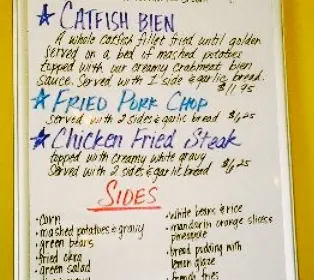 ★ CATFISH BIEN
A whole catfish fillet fried until golden
served on a bed of mashed potatoes
topped with our creamy crabmeat bien
sauce. Served with 1 side & garlic bread.
$11.95
★ FRIED PORK CHOP
served with 2 sides & garlic bread $6.25
★ Chicken Fried Steak
topped with creamy white gravy
Served with 2 sides & garlic bread $6.25
SIDES
• corn
• mashed potatoes & gravy
• green beans
• fried okra
• green salad
• white beans & rice
• mandarin orange slices
pineapple
• bread pudding with
lemon glaze
french fries